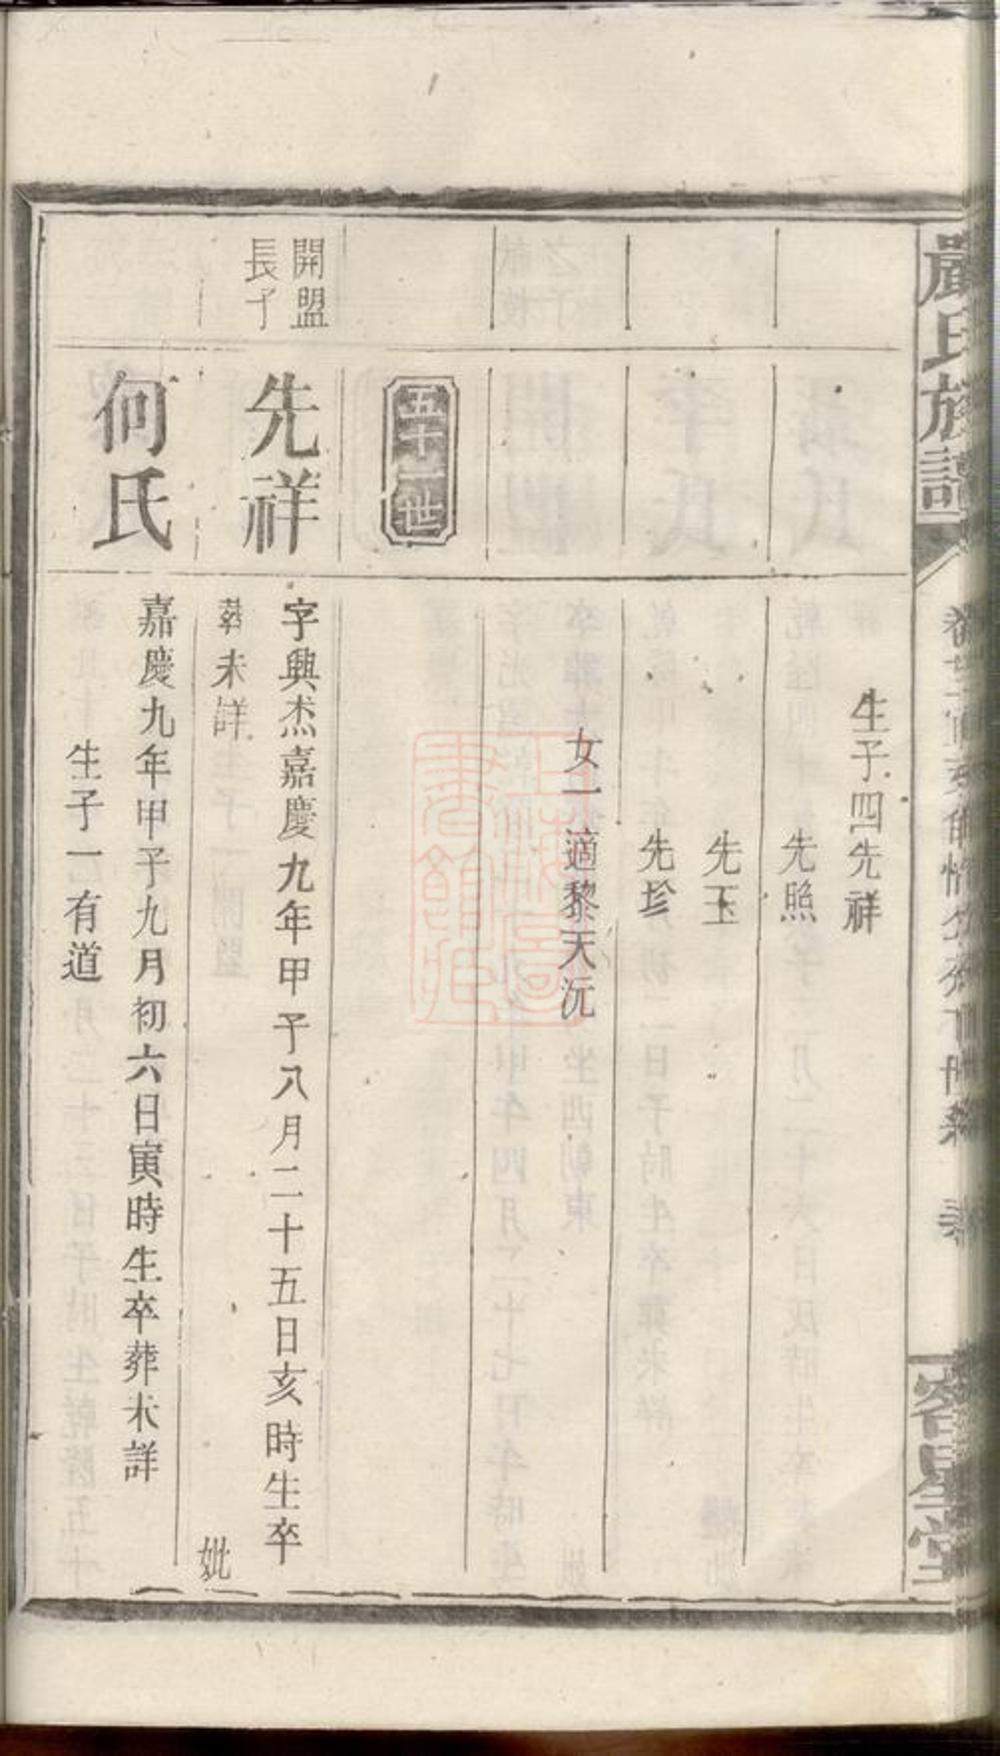 嚴氏族譜
客星堂
生子四先祥
先照
先玉
先珍
女一適黎天沅
五十二世
開盟
長子
先祥
字興杰嘉慶九年甲子八月二十五日亥時生卒
葬未詳
妣
何氏
嘉慶九年甲子九月初六日寅時生卒葬未詳
生子一有道